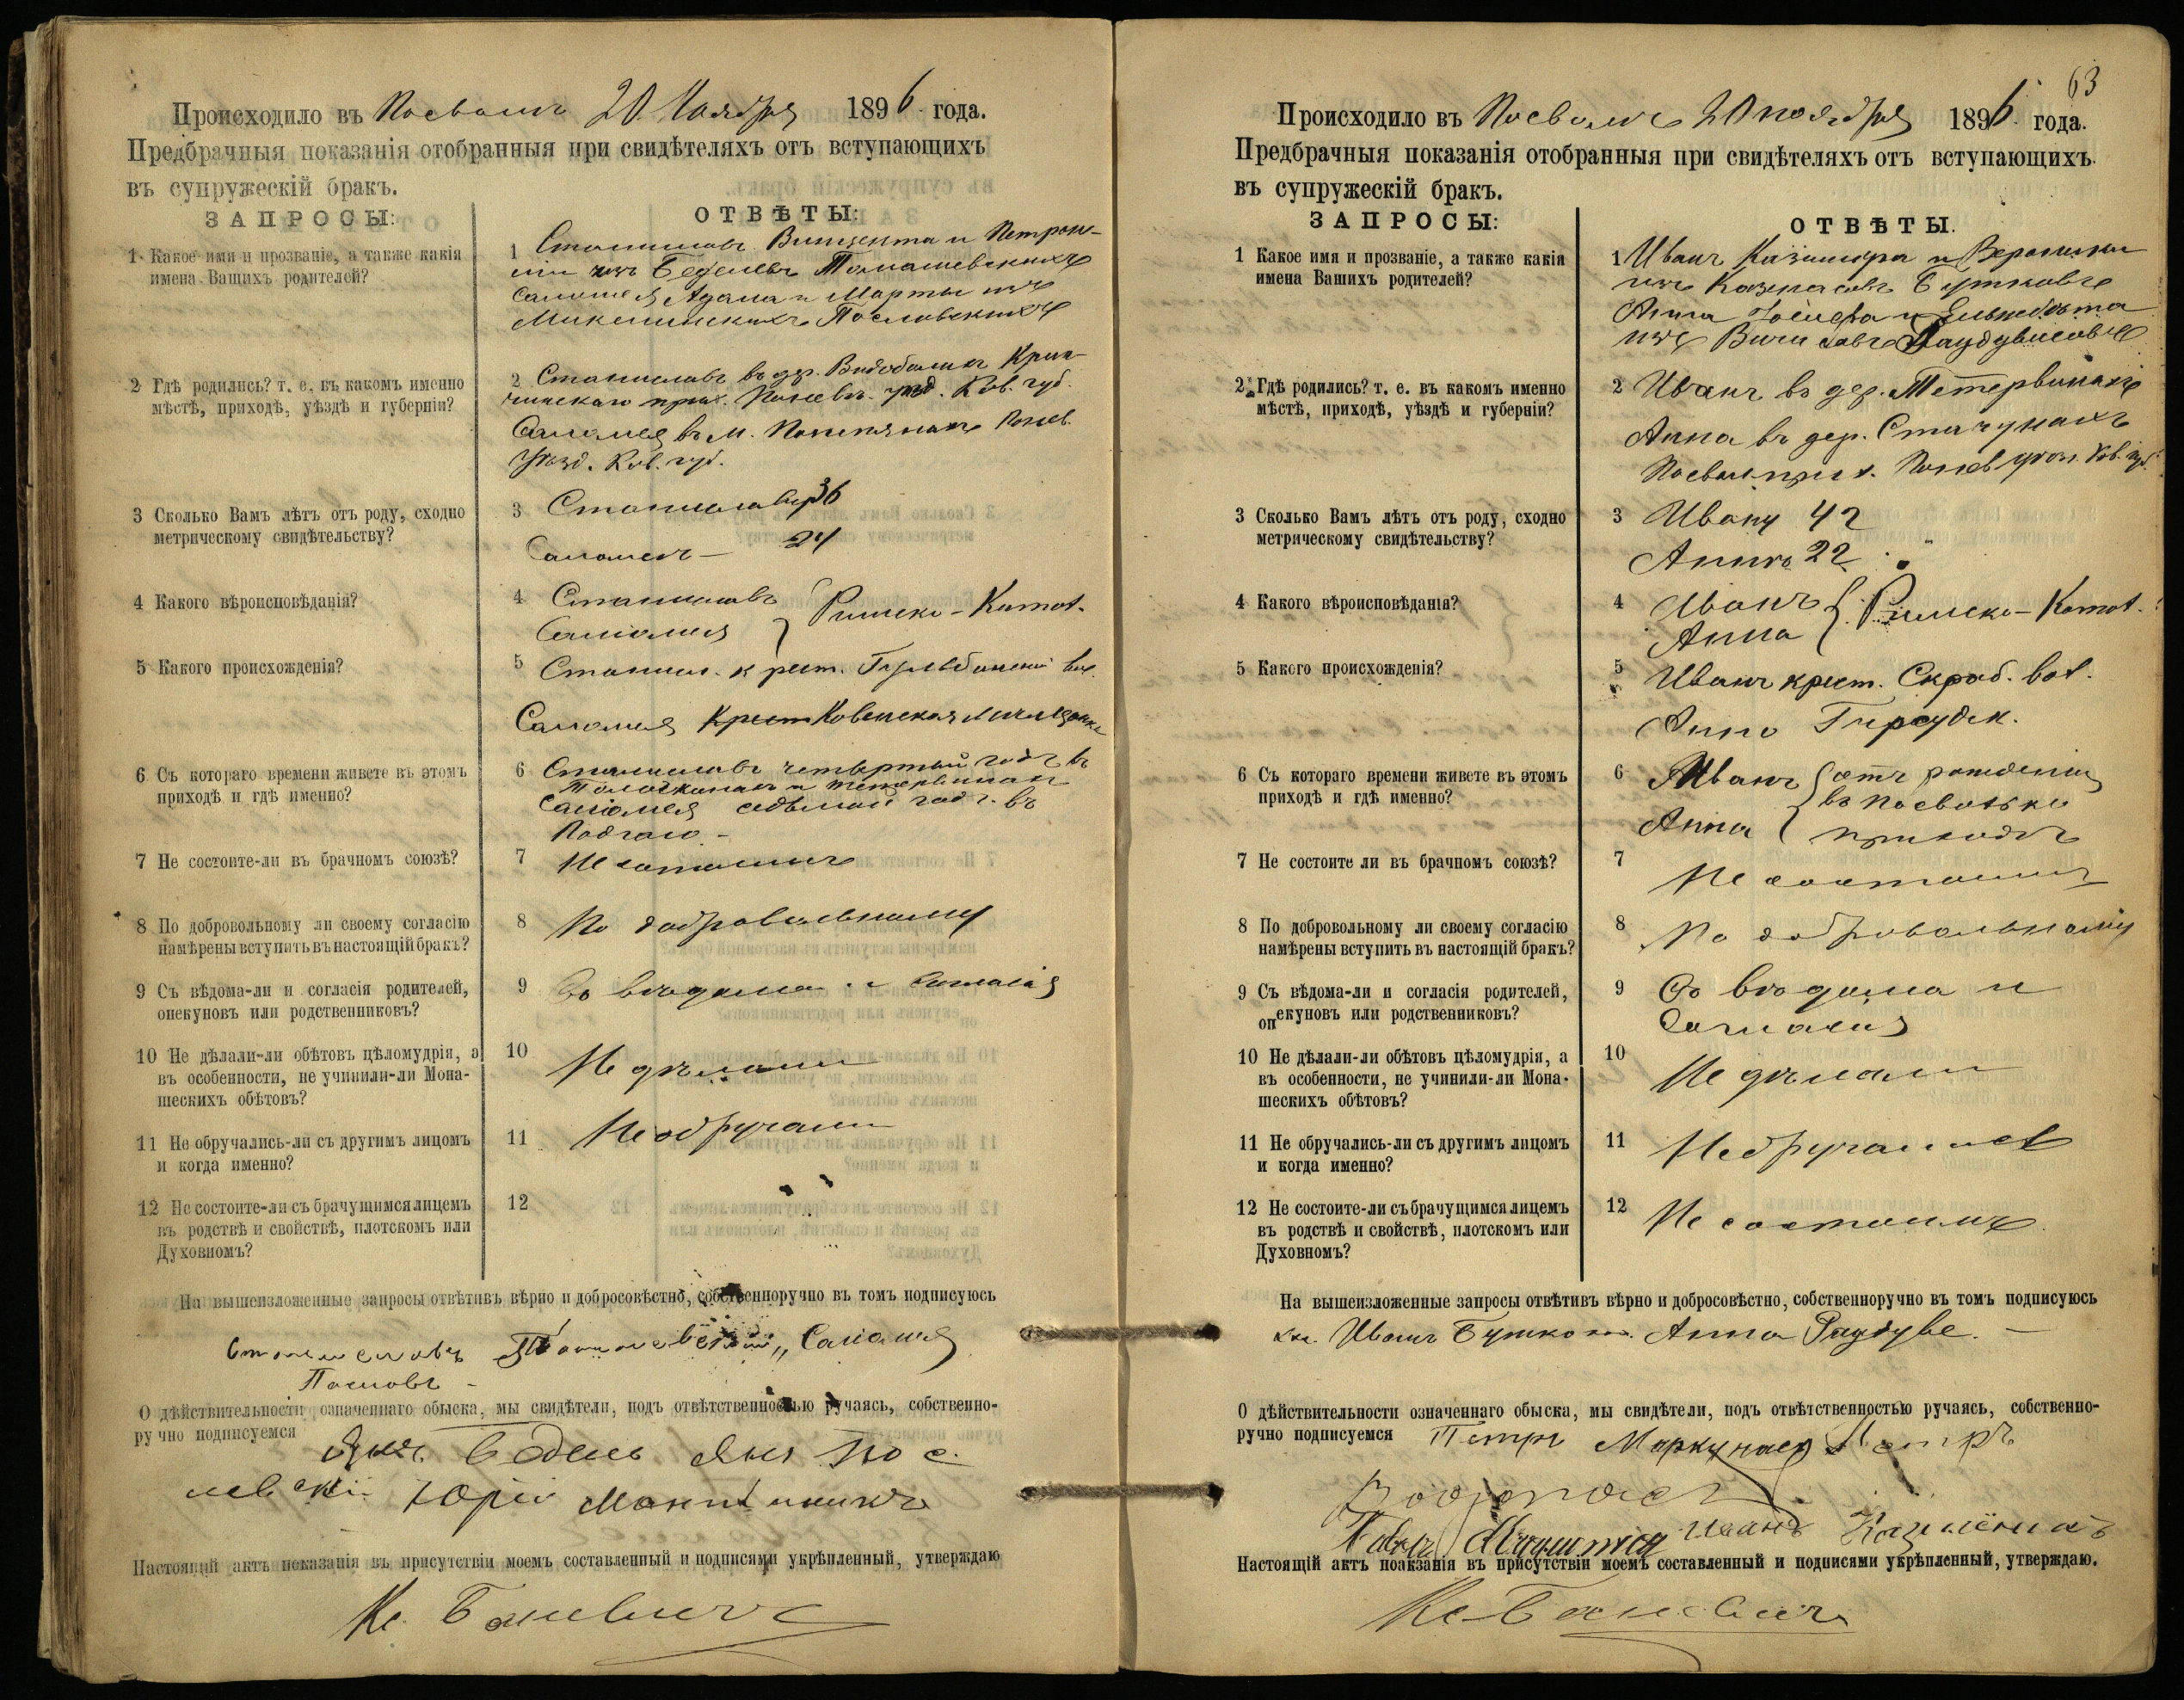 Происходило въ Посволѣ 20 Ноября 1896 года.
Предбрачныя показанія отобранныя при свидѣтеляхъ отъ вступающихъ
въ супружескій бракъ.
ЗАПРОСЫ:
ОТВѢТЫ:
1 Какое имя и прозваніе, а также какія
имена Вашихъ родителей?
1 Станиславъ Винцента и Петроне-
ліи изъ Беделевъ Томашевскихъ
Саломея Адама и Марты изъ
Пословскихъ
2 Гдѣ родились? т. е. въ какомъ именно
мѣстѣ, приходѣ, уѣздѣ и губерніи?
2 Станиславъ въ дер. Крин-
чинскаго прих. Понев. уѣзд. Ков. губ.
Саломея въ м. Понев.
Уѣзд. Ков. губ.
3 Сколько Вамъ лѣтъ отъ роду, сходно
метрическому свидѣтельству?
3 Станиславу 36
Саломеѣ — 24
4 Какого вѣроисповѣданія?
4 Станиславъ
Саломея } Римско-Катол.
5 Какого происхожденія?
5 Станисл. крест. вол.
Саломея Крест Ковенская мѣщанка
6 Съ котораго времени живете въ этомъ
приходѣ и гдѣ именно?
6 Станиславъ четвертый годъ въ
Саломея седьмой годъ въ
7 Не состоите-ли въ брачномъ союзѣ?
7 Не состоимъ
8 По добровольному ли своему согласію
намѣрены вступить въ настоящій бракъ?
8 По добровольному
9 Съ вѣдома-ли и согласія родителей,
опекуновъ или родственниковъ?
9 Съ вѣдома и согласія
10 Не дѣлали-ли обѣтовъ цѣломудрія, а
въ особенности, не учинили-ли Мона-
шескихъ обѣтовъ?
10 Не дѣлали
11 Не обручались-ли съ другимъ лицомъ
и когда именно?
11 Не обручали
12 Не состоите-ли съ брачущимся лицемъ
въ родствѣ и свойствѣ, плотскомъ или
Духовномъ?
12
На вышеизложенные запросы отвѣтивъ вѣрно и добросовѣстно, собственноручно въ томъ подписуюсь
Станиславъ Томашевскій, Саломея
Пословъ -
О дѣйствительности означеннаго обыска, мы свидѣтели, подъ отвѣтственностью ручаясь, собственно-
ручно подписуемся
Янъ Бедель Янъ Пос
левскій Юрій
Настоящій актъ показанія въ присутствіи моемъ составленный и подписями укрѣпленный, утверждаю
Кс. Баневичъ
63
Происходило въ Посволѣ 20 ноября 1896 года.
Предбрачныя показанія отобранныя при свидѣтеляхъ отъ вступающихъ
въ супружескій бракъ.
ЗАПРОСЫ:
ОТВѢТЫ.
1 Какое имя и прозваніе, а также какія
имена Вашихъ родителей?
1 Иванъ Казимира и Вероники
изъ Бутковъ
Анна Іосифа и Ельжбѣта
изъ Раудувисовъ
2 Гдѣ родились? т. е. въ какомъ именно
мѣстѣ, приходѣ, уѣздѣ и губерніи?
2 Иванъ въ дер. Метервинахъ
Анна въ дер. Стачунахъ
Посвол. прих. Понев. уѣзд. Ков. губ.
3 Сколько Вамъ лѣтъ отъ роду, сходно
метрическому свидѣтельству?
3 Ивану 42
Аннѣ 22
4 Какого вѣроисповѣданія?
4 Иванъ
Анна } Римско-Катол.
5 Какого происхожденія?
5 Иванъ крест. Скраб. вол.
Анна Гирсудск.
6 Съ котораго времени живете въ этомъ
приходѣ и гдѣ именно?
6 Иванъ { отъ рожденія
въ Посвольск.
Анна приходѣ
7 Не состоите ли въ брачномъ союзѣ?
7 Не состоимъ
8 По добровольному ли своему согласію
намѣрены вступить въ настоящій бракъ?
8 По добровольному
9 Съ вѣдома-ли и согласія родителей,
опекуновъ или родственниковъ?
9 Съ вѣдома и
согласія
10 Не дѣлали-ли обѣтовъ цѣломудрія, а
въ особенности, не учинили-ли Мона-
шескихъ обѣтовъ?
10 Не дѣлали
11 Не обручались-ли съ другимъ лицомъ
и когда именно?
11 Не обручались
12 Не состоите-ли съ брачущимся лицемъ
въ родствѣ и свойствѣ, плотскомъ или
Духовномъ?
12 Не состоимъ
На вышеизложенные запросы отвѣтивъ вѣрно и добросовѣстно, собственноручно въ томъ подписуюсь
Иванъ Бутко Анна Раудуве. —
О дѣйствительности означеннаго обыска, мы свидѣтели, подъ отвѣтственностью ручаясь, собственно-
ручно подписуемся Петръ Маркунасъ Петръ
Иванъ
Настоящій актъ поакзанія въ присутствіи моемъ составленный и подписями укрѣпленный, утверждаю.
Кс Баневичъ